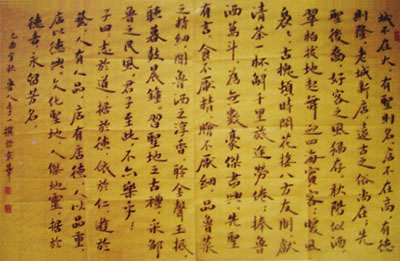 城不在大，有聖則名，店不在高，有德
則隆。老城新店，遠古之俗尚在，先
聖後裔，好客之風猶存。秋陽似酒，
翠柏拔地起舞迎四海賓客；暖風
古槐頻時開花 八方友朋獻
清茶一杯，解千里於途勞倦；捧魯
酒萬斗，為無數豪傑 興。先聖
有言，食不厭精，膾不厭細，品魯菜
之精細，聞魯酒之淳香，聆金聲玉振，
聽暮鼓晨鐘，習聖地之古禮，采鄒
魯之民風，君子至此，不亦樂乎！
子曰志於道，據於德，依於仁，遊於
藝。人有人品，店有店德，人以品重，
店以德興。文化聖地，人傑地靈，據於
德壽，永留芳名。
乙酉 秋 魯人李 撰於京華